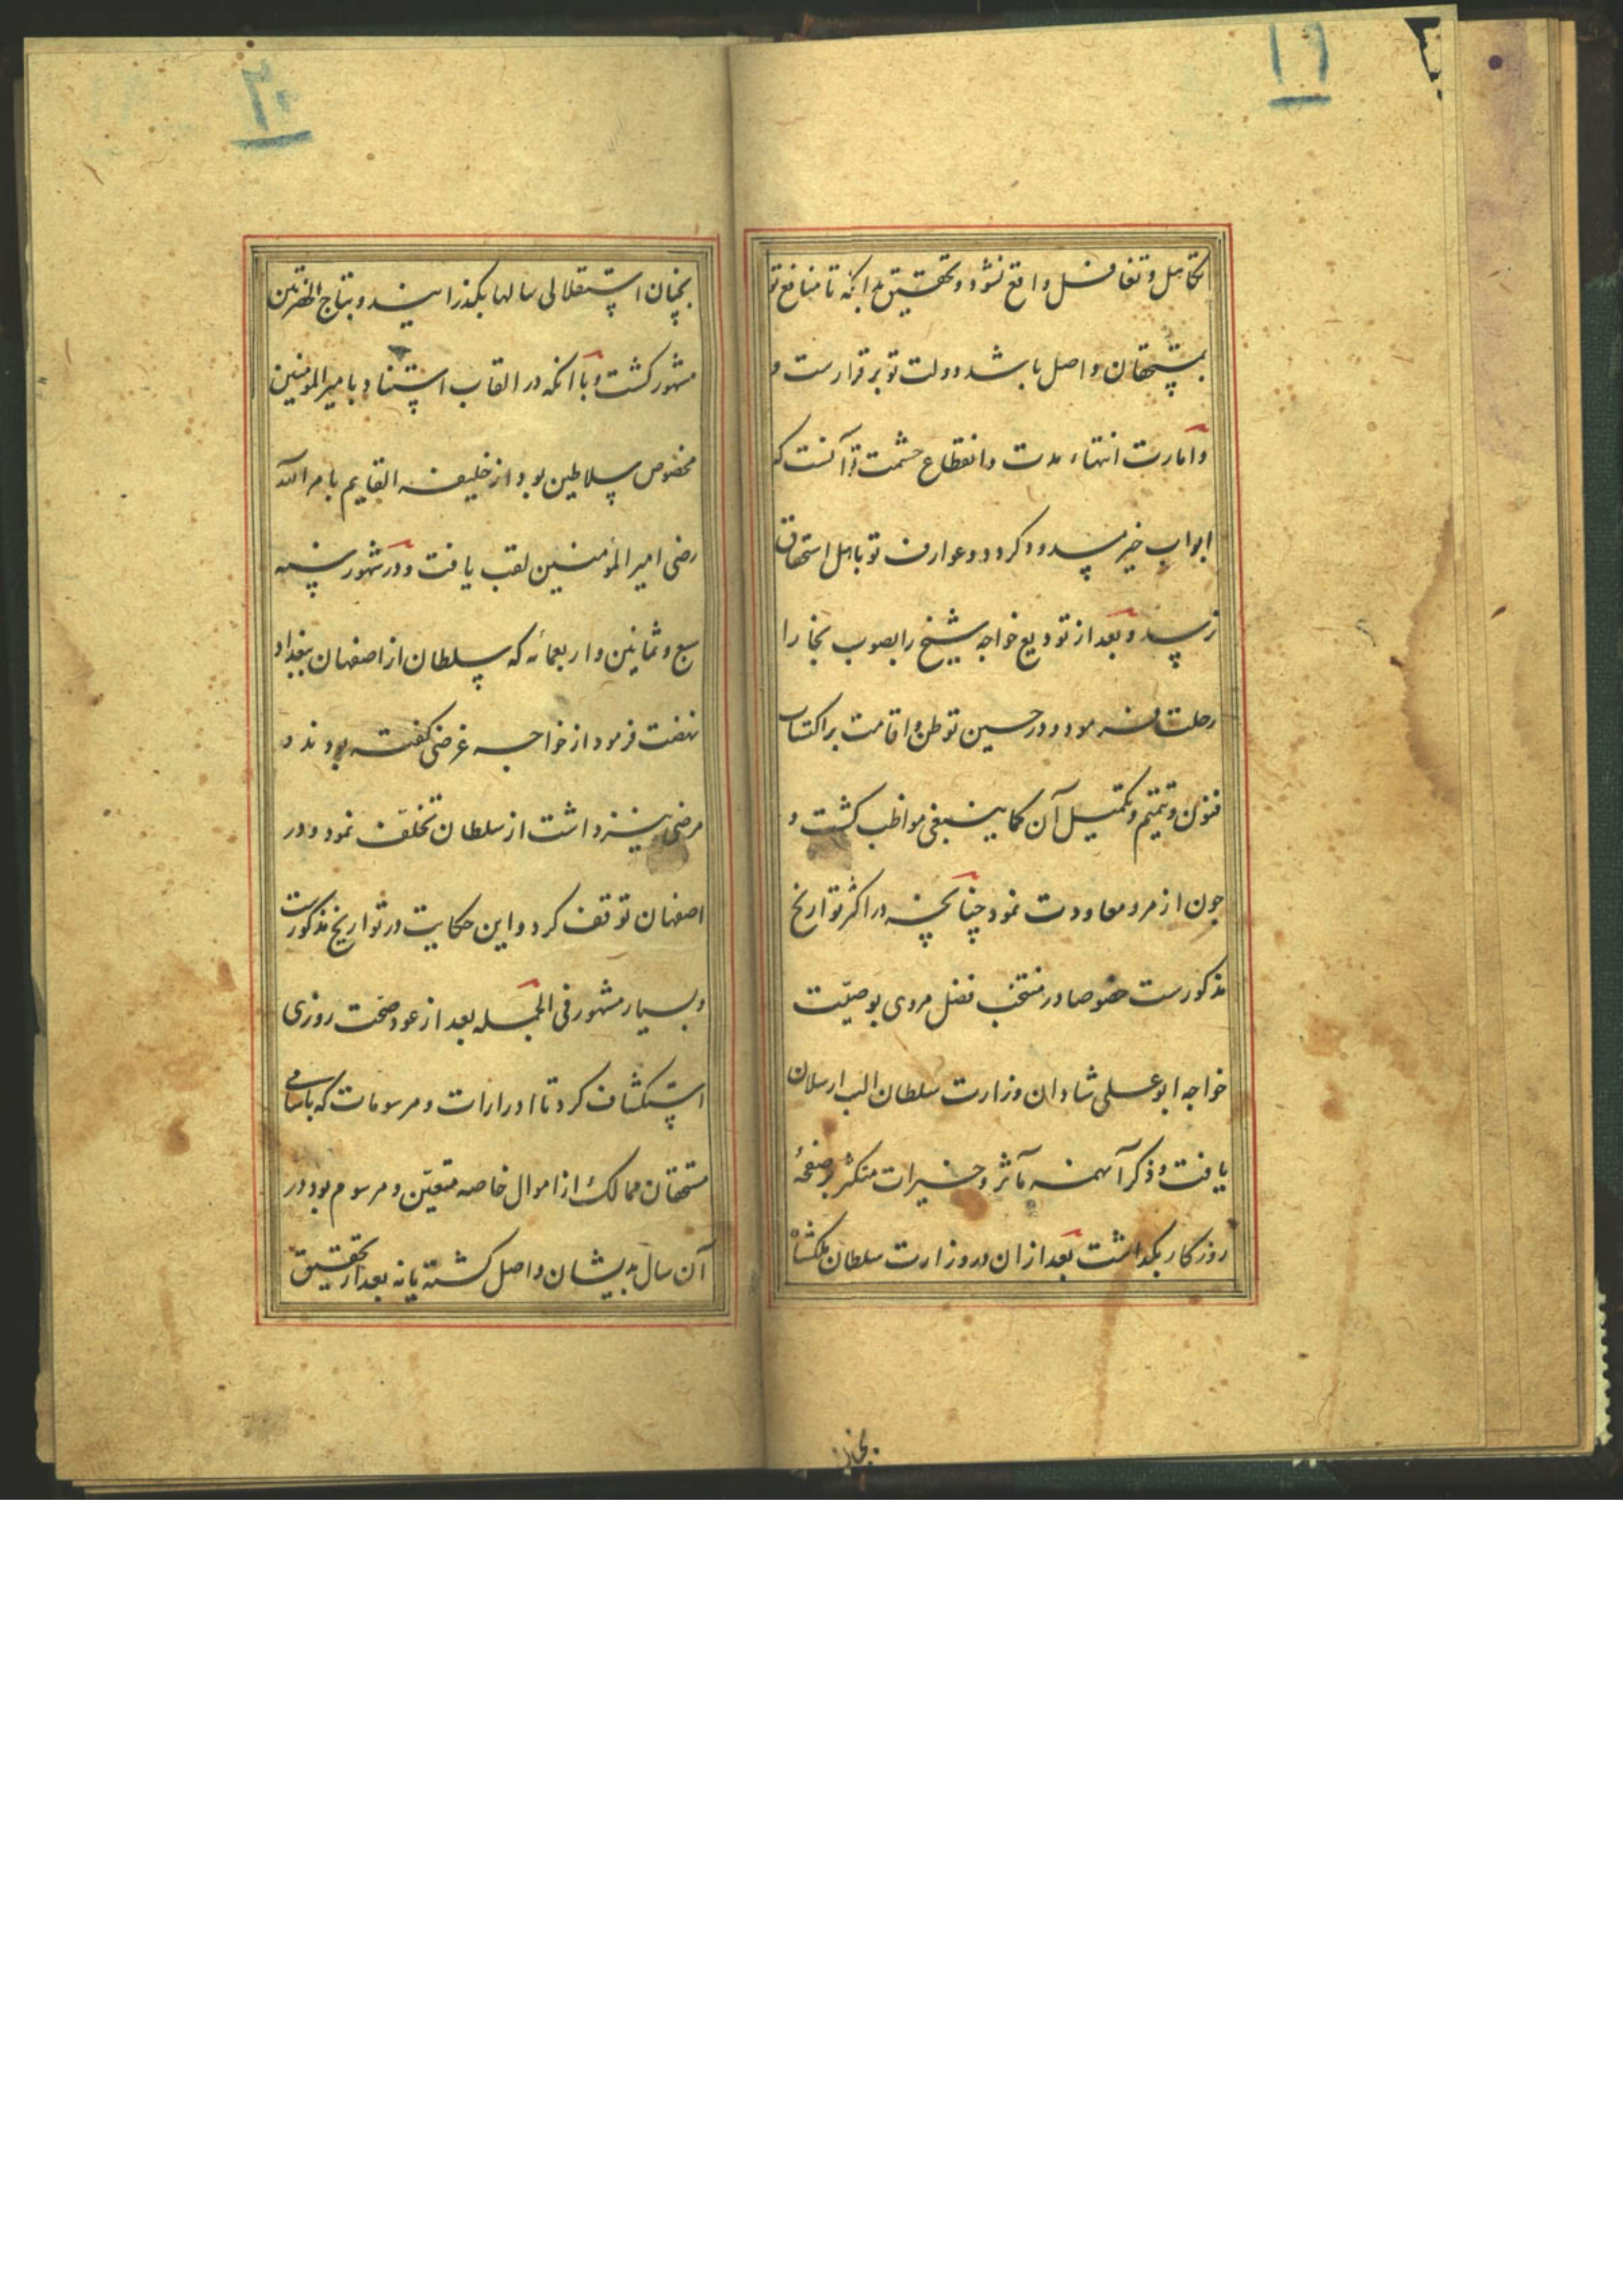 ۱۹
تکاهل و تغافل واقع نشود و تحقیق بدانکه تا منافع تو
بمستحقان واصل باشد دولت تو بر قرارست و
و امارت انتهاء مدت و انقطاع حشمت تو آنست که
ابواب خیر مسدود کردد و عوارف تو باهل استحقاق
نرسد و بعد از تودیع خواجه شیخ را بصوب بخارا
رحلت فرمود و در حین توطن و اقامت بر اکتساب
فنون و تتمیم و تکمیل آن کما ینبغی مواظب کشت و
جون از مرو معاودت نمود چنانچه در اکثر تواریخ
مذکورست خصوصا در منتخب فضل مروی بوصیّت
خواجه ابو علی شادان وزارت سلطان الب ارسلان
یافت و ذکر آن همه مآثر و خیرات متکثر بر صفحهٔ
روزکار بکذاشت بعد ازان در وزارت سلطان ملکشاه
بخان
۲۰
بخنان استقلالی سالها بکذرانید و بتاج الحضرتین
مشهور کشت و با آنکه در القاب استناد بامیر المومنین
مخصوص سلاطین بود از خلیفه القایم بامر الله
رضی امیر المؤمنین لقب یافت و در شهور سنه
سبع و ثمانین و اربعمائه که سلطان از اصفهان ببغداد
نهضت فرمود از خواجه غرضی کفته بودند و
مرضی نیز داشت از سلطان تخلّف نمود و در
اصفهان توقف کرد و این حکایت در تواریخ مذکورست
و بسیار مشهور فی الجمله بعد از عود صحّت روزی
استکشاف کرد تا ادرارات و مرسومات که باسامی
مستحقان ممالک از اموال خاصه متعیّن و مرسوم بود در
آن سال بدیشان واصل کشته یا نه بعد از تحقیق